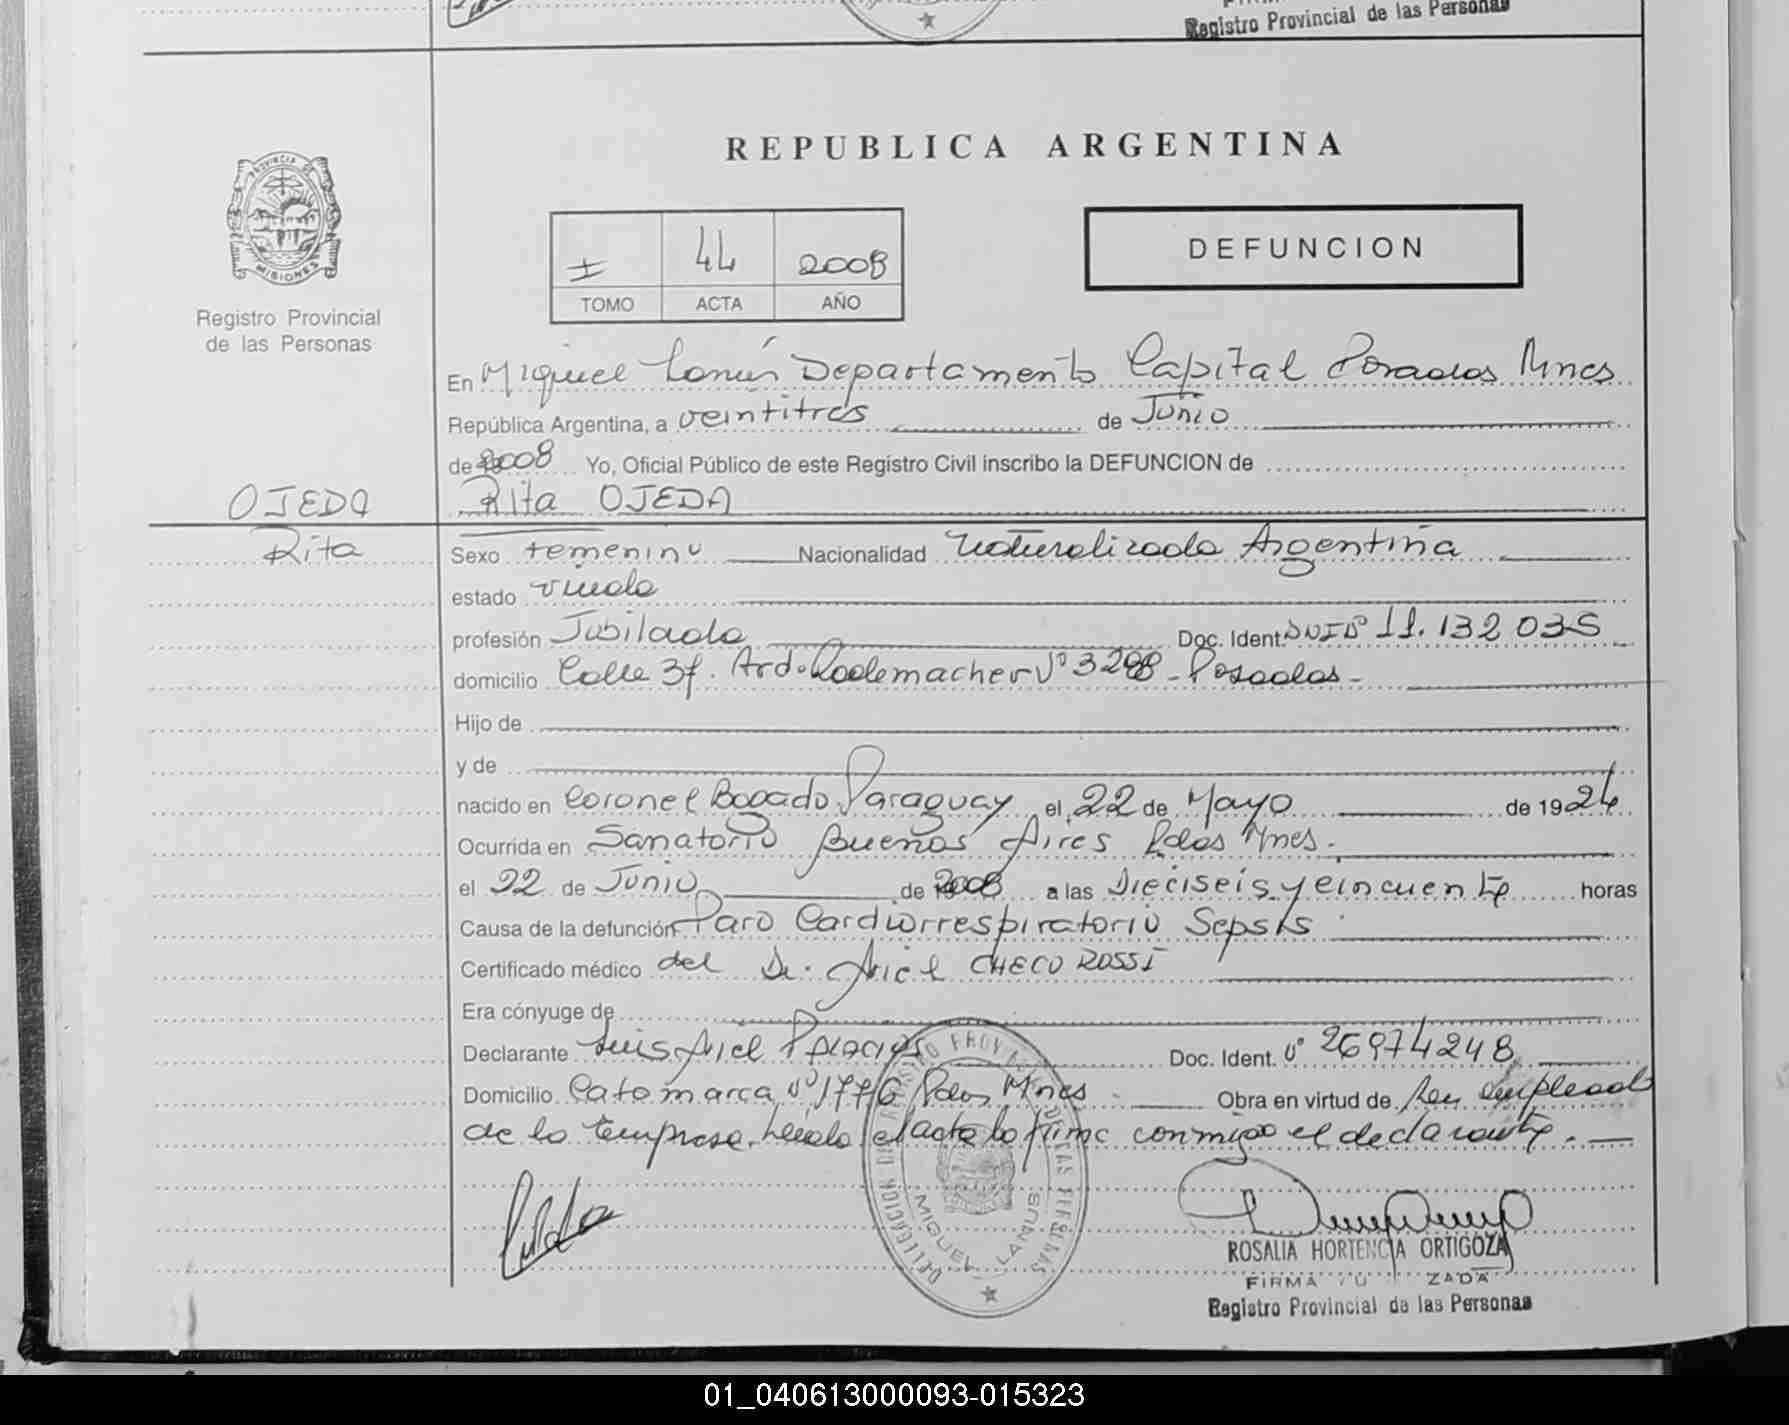 Registro Provincial de las Personas
REPUBLICA ARGENTINA
PROVINCIA DE
MISIONES
Registro Provincial
de las Personas
I 44 2008
TOMO ACTA AÑO
DEFUNCION
En Miguel Lanús Departamento Capital Posadas Mnes
República Argentina, a veintitres de Junio
de 2008 Yo, Oficial Público de este Registro Civil inscribo la DEFUNCION de
OJEDA Rita OJEDA
Rita Sexo femenino Nacionalidad Naturalizada Argentina
estado viuda
profesión Jubilada Doc. Ident. DNI Nº 11.132.035
domicilio Calle 37. Ard. Rademacher Nº 3298 - Posadas -
Hijo de
y de
nacido en Coronel Bogado Paraguay el 22 de Mayo de 1924
Ocurrida en Sanatorio Buenos Aires Pdas Mnes.
el 22 de Junio de 2008 a las Dieciseis y cincuenta horas
Causa de la defunción Paro Cardiorrespiratorio Sepsis
Certificado médico del Dr. Ariel CHECO ROSSI
Era cónyuge de
Declarante Luis Ariel Palacios Doc. Ident. Nº 26974248
Domicilio Catamarca Nº 1776 Pdas Mnes Obra en virtud de Ser empleado
de la Empresa. Leída el acta la firma conmigo el declarante.
DELEGACION DE REGISTRO PROVINCIAL DE LAS PERSONAS
MIGUEL LANUS
ROSALIA HORTENCIA ORTIGOZA
FIRMA AUTORIZADA
Registro Provincial de las Personas
01_040613000093-015323